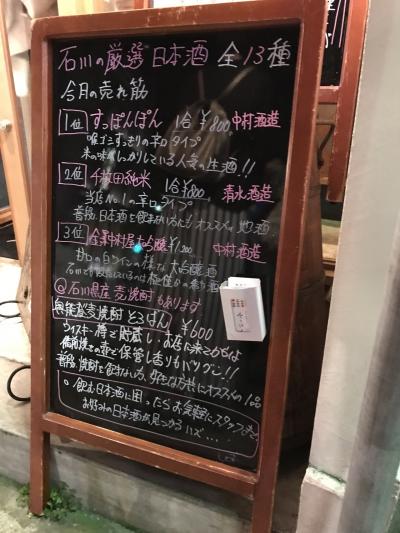 石川の厳選日本酒 全13種
今月の売れ筋
1位 すっぽんぽん 1合¥800 中村酒造
喉ゴシすっきりの辛口タイプ
米の味がしっかりしている人気の生酒!!
2位 千枚田純米 1合¥800 清水酒造
当店No.1の辛口タイプ
普段、日本酒を飲まない方にもオススメの地酒
3位 大吟醸 ¥1,200 中村酒造
甘口の白ワインの様な大吟醸酒
石川でも
◎石川県産麦焼酎もあります
麦焼酎 とっぱん ¥600
ウイスキー樽で貯蔵し、お店に来てからは
備前焼きの壺で保管し香りもバツグン!!
普段、焼酎を飲まない方、好きな方共にオススメの1品
○飲む日本酒に困ったらお気軽にスタッフまで
お好みの日本酒が見つかるハズ・・・